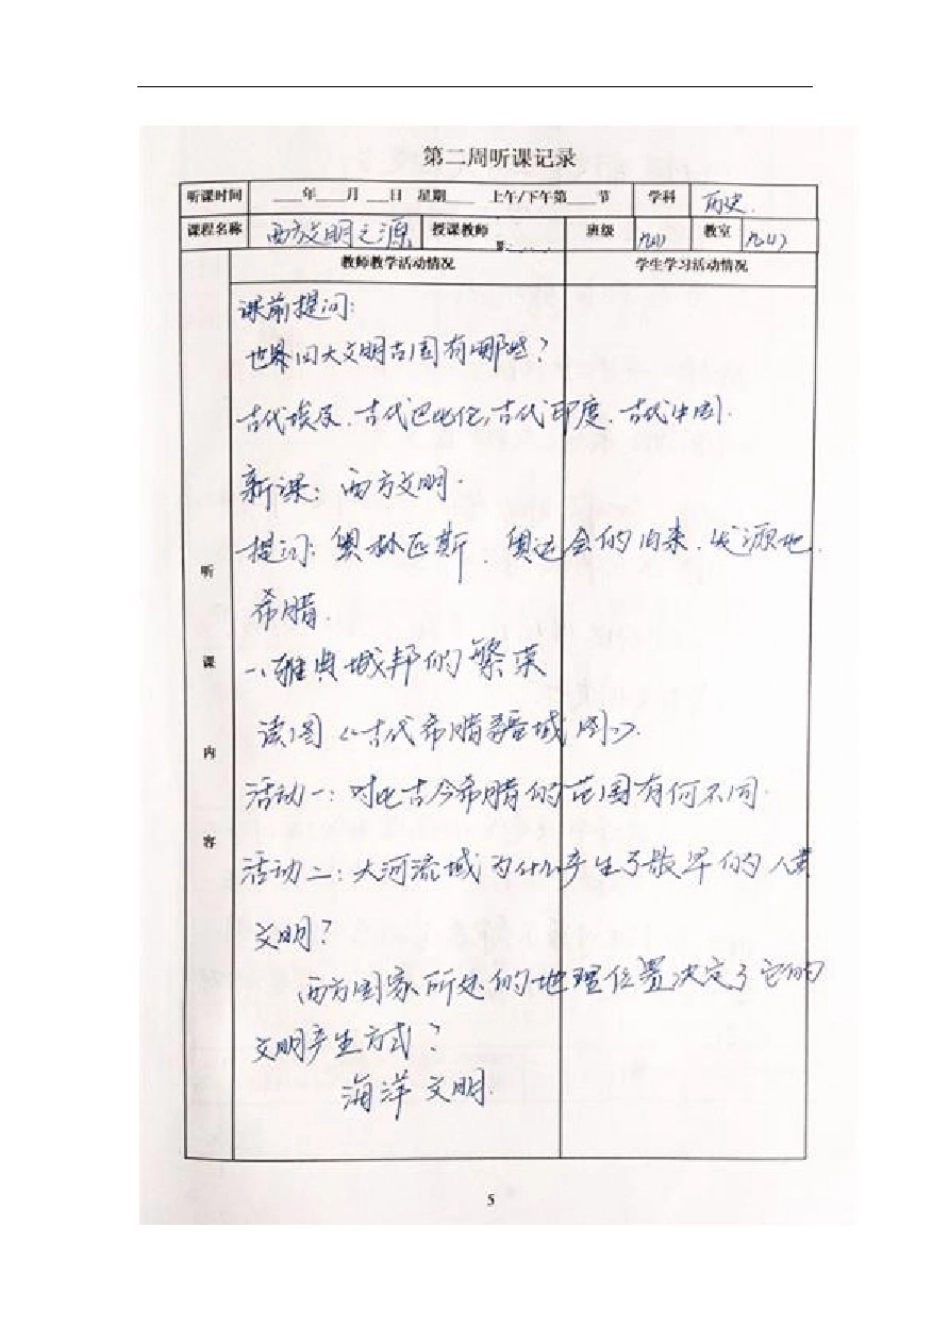 第二周听课记录
听课时间 ___年___月___日 星期___ 上午/下午第___节 学科 历史.
课程名称 西方文明之源 授课教师 班级 九(1) 教室 九(1)
教师教学活动情况 学生学习活动情况
听课内容
课前提问:
世界四大文明古国有哪些?
古代埃及、古代巴比伦,古代印度、古代中国.
新课: 西方文明.
提问: 奥林匹斯、奥运会的由来、发源地
希腊.
一、雅典城邦的繁荣
读图《古代希腊疆域图》.
活动一: 对比古今希腊的范围有何不同.
活动二: 大河流域为什么产生了最早的人类
文明?
西方国家所处的地理位置决定了它的
文明产生方式?
海洋文明.
5